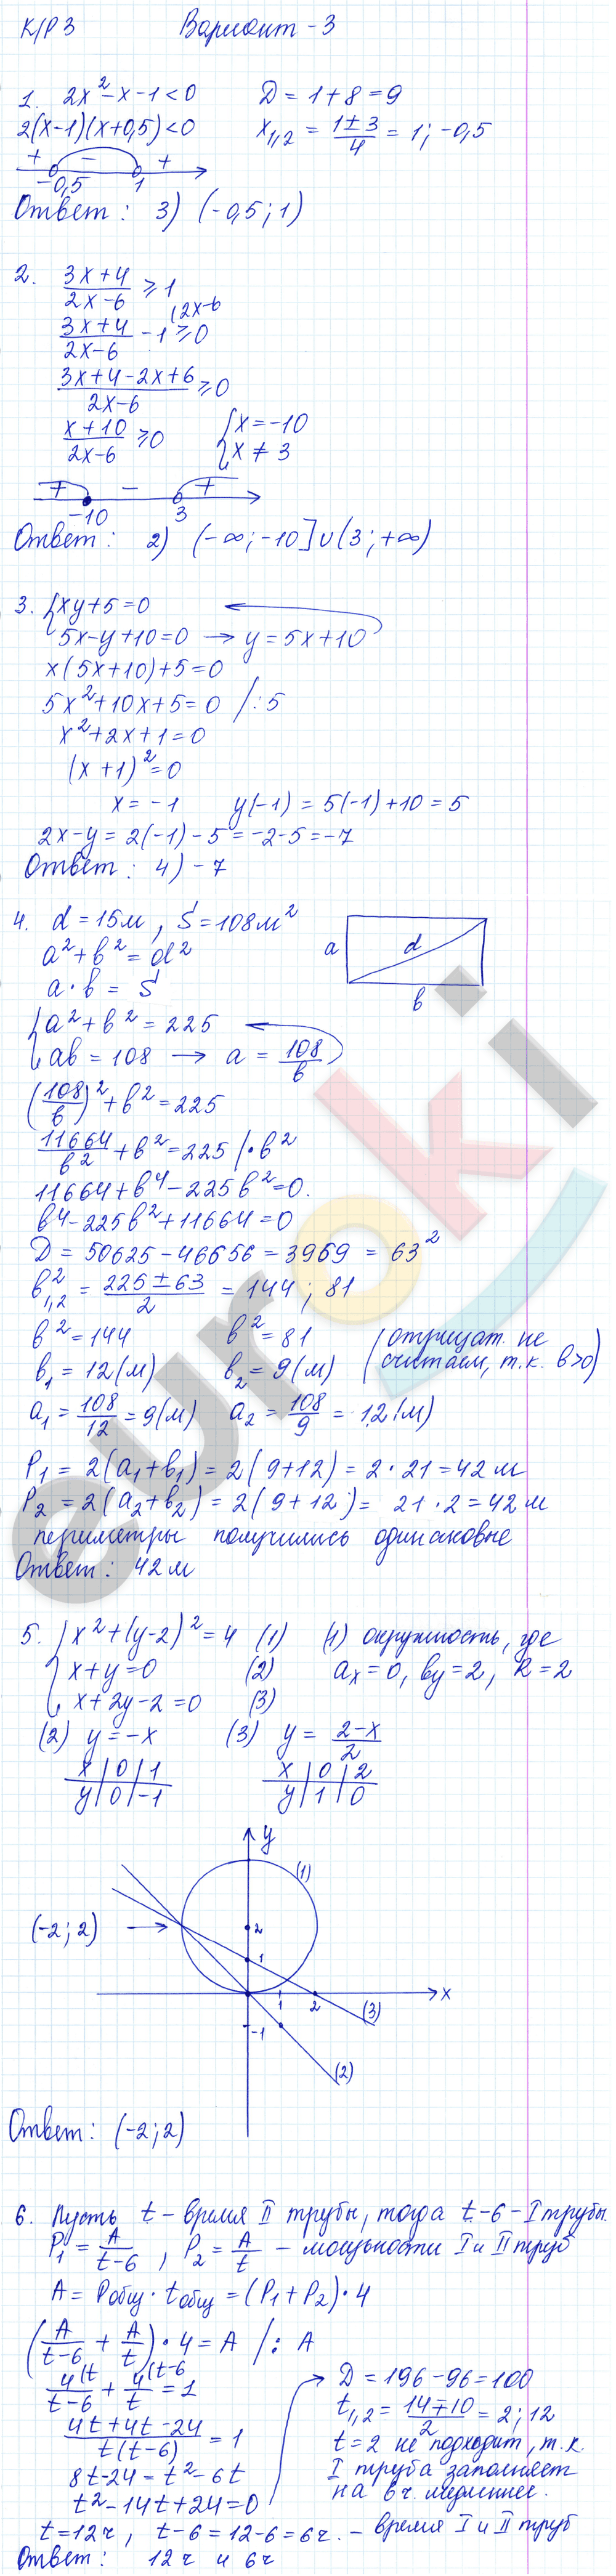 К/Р 3 Вариант - 3
1. 2x² - x - 1 < 0 D = 1 + 8 = 9
2(x-1)(x+0,5) < 0 x₁,₂ = (1 ± 3)/4 = 1; -0,5
+ - +
-0,5 1
Ответ: 3) (-0,5; 1)
2. (3x+4)/(2x-6) ≥ 1
(3x+4)/(2x-6) - 1 ≥ 0 (2x-6
(3x+4-2x+6)/(2x-6) ≥ 0
(x+10)/(2x-6) ≥ 0 { x = -10
x ≠ 3
+ - +
-10 3
Ответ: 2) (-∞; -10] ∪ (3; +∞)
3. { xy + 5 = 0
5x - y + 10 = 0 → y = 5x + 10
x(5x+10) + 5 = 0
5x² + 10x + 5 = 0 /: 5
x² + 2x + 1 = 0
(x+1)² = 0
x = -1 y(-1) = 5(-1) + 10 = 5
2x - y = 2(-1) - 5 = -2 - 5 = -7
Ответ: 4) -7
4. d = 15м, S = 108м²
a² + b² = d²
a · b = S
a d b
{ a² + b² = 225
ab = 108 → a = 108/b
(108/b)² + b² = 225
11664/b² + b² = 225 /· b²
11664 + b⁴ - 225b² = 0.
b⁴ - 225b² + 11664 = 0
D = 50625 - 46656 = 3969 = 63²
b²₁,₂ = (225 ± 63)/2 = 144; 81
b² = 144 b² = 81 (отрицат. не
b₁ = 12(м) b₂ = 9(м) считаем, т.к. b>0)
a₁ = 108/12 = 9(м) a₂ = 108/9 = 12(м)
P₁ = 2(a₁+b₁) = 2(9+12) = 2 · 21 = 42 м
P₂ = 2(a₂+b₂) = 2(9+12) = 21 · 2 = 42 м
периметры получились одинаковые
Ответ: 42 м
5. { x² + (y-2)² = 4 (1) (1) окружность, где
x + y = 0 (2) aₓ = 0, by = 2, R = 2
x + 2y - 2 = 0 (3)
(2) y = -x (3) y = (2-x)/2
x | 0 | 1 x | 0 | 2
y | 0 | -1 y | 1 | 0
y
(1)
(-2; 2) → 2
1
1 2 x
(3)
-1
(2)
Ответ: (-2; 2)
6. Пусть t - время II трубы, тогда t-6 - I трубы.
P₁ = A/(t-6), P₂ = A/t - мощности I и II труб
A = Pобщ · tобщ = (P₁ + P₂) · 4
(A/(t-6) + A/t) · 4 = A /: A
4(t/(t-6) + 4(t-6/t = 1 D = 196 - 96 = 100
(4t+4t-24)/(t(t-6)) = 1 t₁,₂ = (14∓10)/2 = 2; 12
8t - 24 = t² - 6t t = 2 не подходит, т.к.
t² - 14t + 24 = 0 I труба заполняет
на 6 ч. медленнее.
t = 12ч, t-6 = 12-6 = 6ч. - время I и II труб
Ответ: 12ч и 6ч
euroki